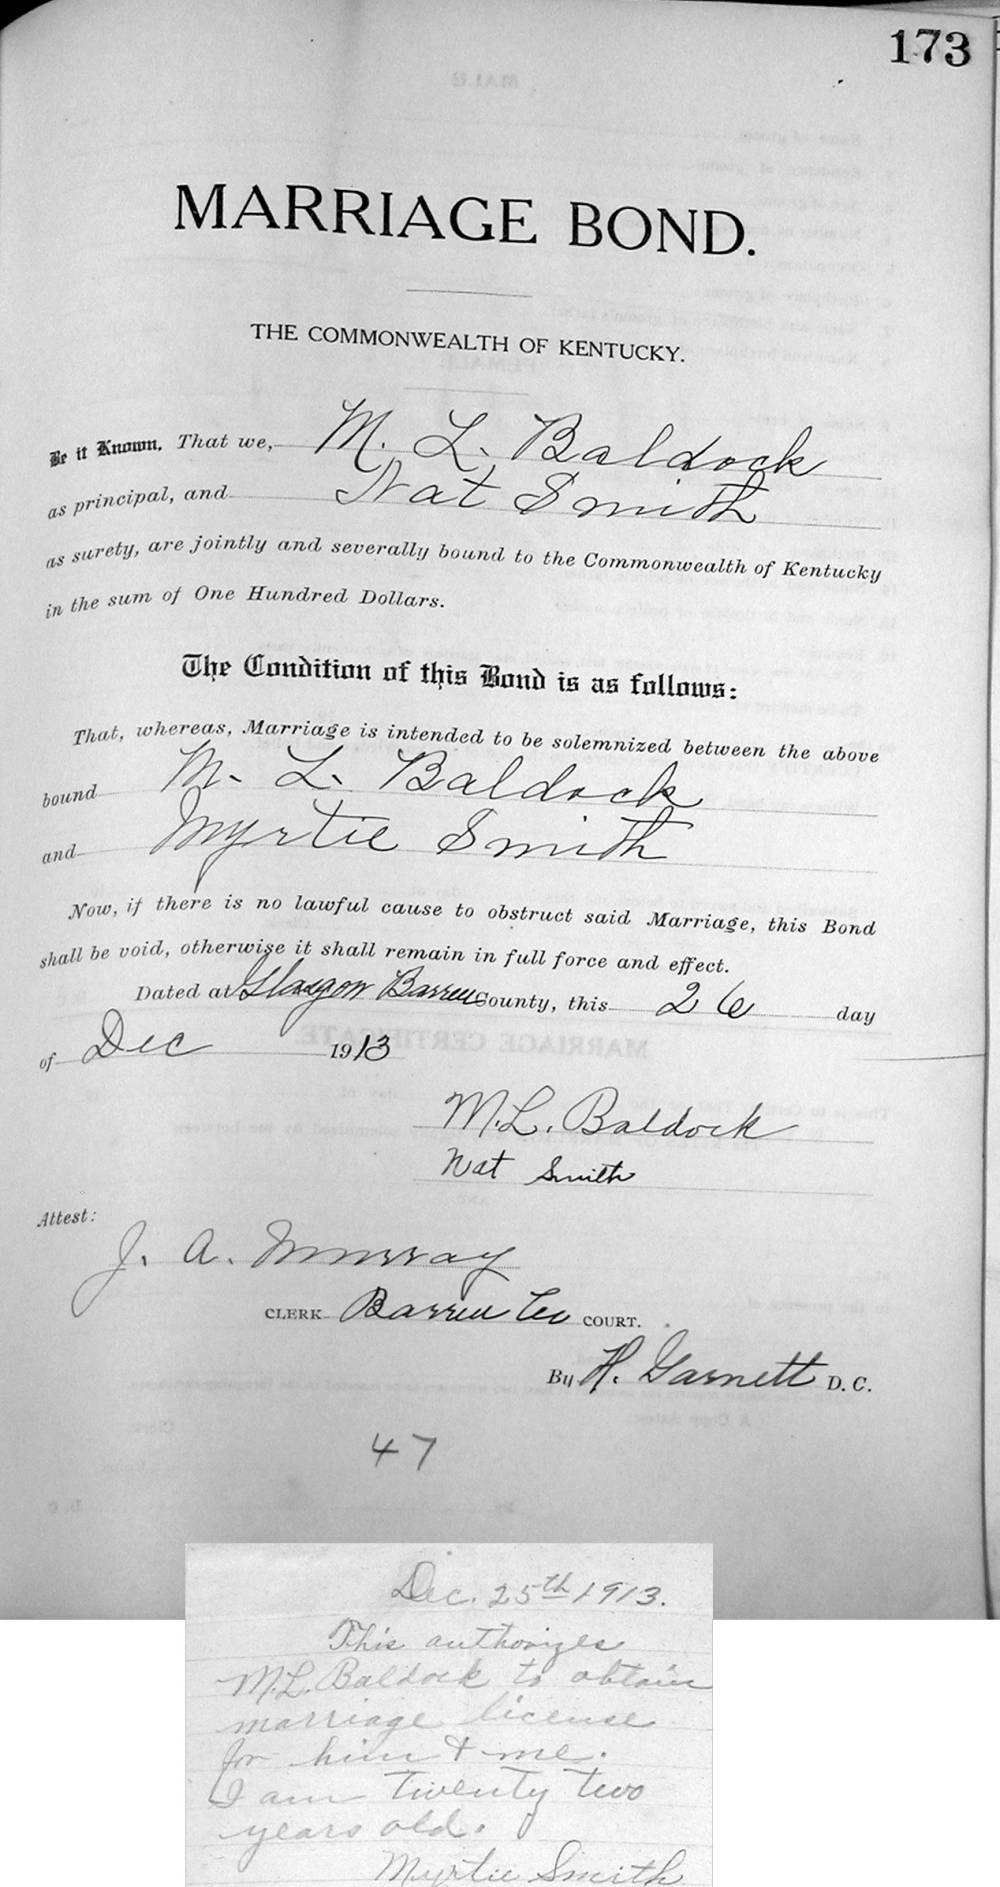 173
MARRIAGE BOND.
THE COMMONWEALTH OF KENTUCKY.
Be it Known, That we, M. L. Baldock
as principal, and Nat Smith
as surety, are jointly and severally bound to the Commonwealth of Kentucky
in the sum of One Hundred Dollars.
The Condition of this Bond is as follows:
That, whereas, Marriage is intended to be solemnized between the above
bound M. L. Baldock
and Myrtie Smith
Now, if there is no lawful cause to obstruct said Marriage, this Bond
shall be void, otherwise it shall remain in full force and effect.
Dated at Glasgow Barren County, this 26 day
of Dec 1913
M. L. Baldock
Nat Smith
Attest:
J. A. Murray
CLERK Barren Co COURT.
By H. Garnett D. C.
47
Dec. 25th 1913.
This authorizes
M. L. Baldock to obtain
marriage license
for him & me.
I am twenty two
years old.
Myrtie Smith